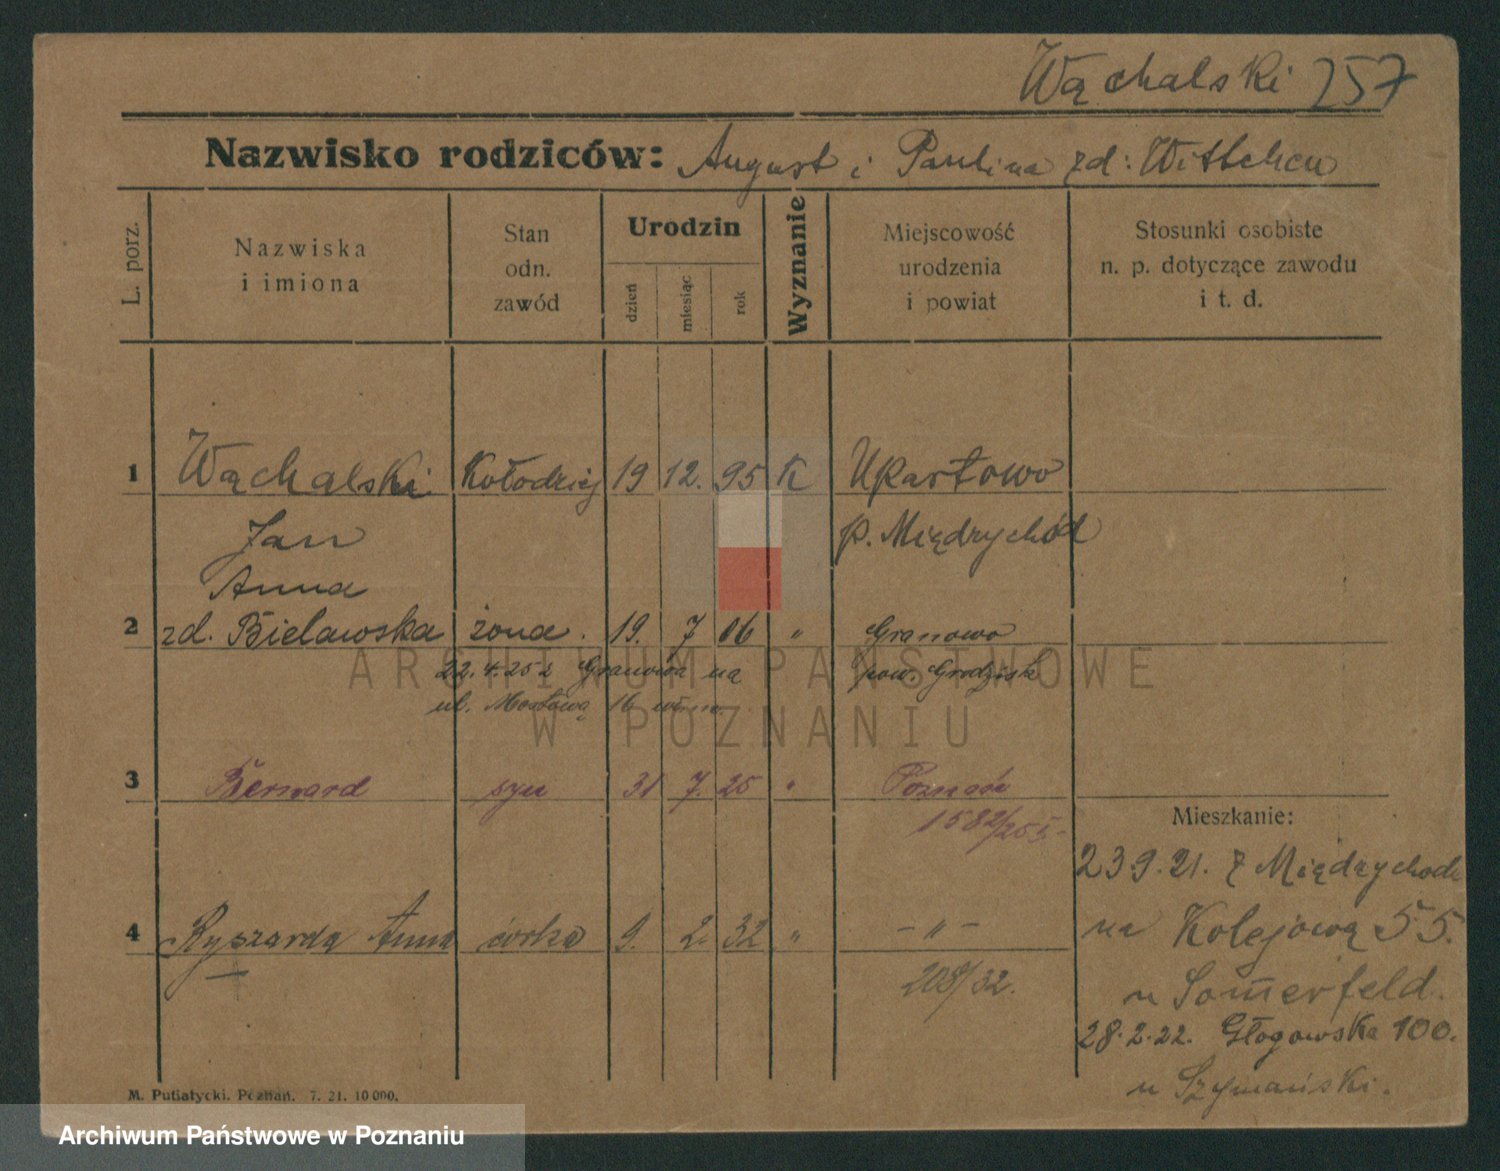 Wąchalski 257
Nazwisko rodziców: August i Paulina zd: Wittchen
L. porz.
Nazwiska i imiona
Stan odn. zawód
Urodzin
dzień
miesiąc
rok
Wyznanie
Miejscowość urodzenia i powiat
Stosunki osobiste n. p. dotyczące zawodu i t. d.
1 Wąchalski Kołodziej 19 12. 95 K Upartowo
Jan p. Międzychód
Anna
2 zd. Bielawska żona. 19. 7 06 " Granowo
22.4.25 z Granowa na pow. Grodzisk
ul. Mostową 16
3 Bernard syn 31 7. 25 " Poznań
1582/255
Mieszkanie:
23 9. 21. z Międzychodu
4 Ryszarda Anna córka 9. 2. 32 " – " –
na Kolejową 55.
208/32.
u Somerfeld.
28.2.22. Głogowska 100.
u Szymański.
M. Putiatycki. Poznań. 7. 21. 10 000.
ARCHIWUM PAŃSTWOWE
W POZNANIU
Archiwum Państwowe w Poznaniu